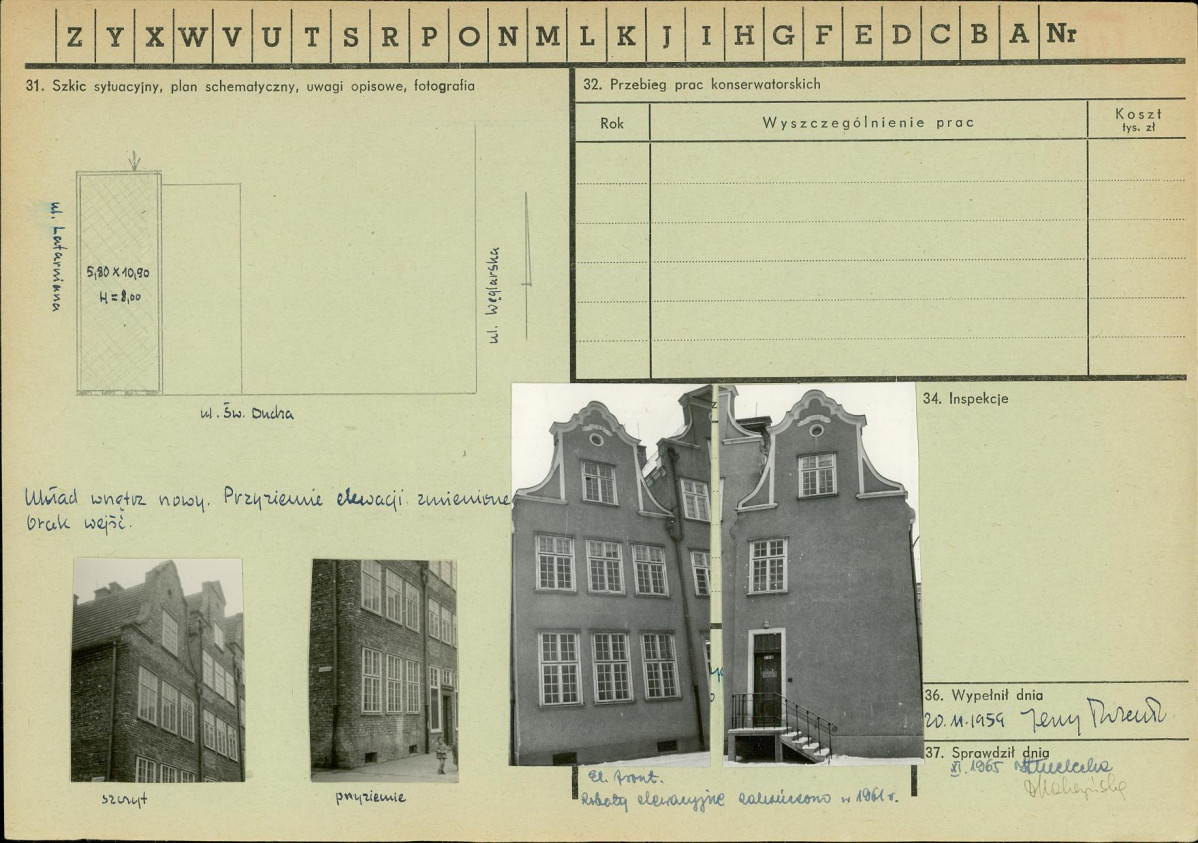 Z Y X W V U T S R P O N M L K J I H G F E D C B A Nr
31. Szkic sytuacyjny, plan schematyczny, uwagi opisowe, fotografia
32. Przebieg prac konserwatorskich
Rok
Wyszczególnienie prac
Koszt
tys. zł
ul. Latarniana
5,80 x 10,90
H = 8,00
ul. Węglarska
ul. Św. Ducha
Układ wnętrz nowy. Przyziemie elewacji zmienione
brak wejść.
szczyt
przyziemie
El. front.
Roboty elewacyjne zakończono w 1961 r.
34. Inspekcje
36. Wypełnił dnia
20.11.1959 Jerzy
37. Sprawdził dnia
XI. 1965